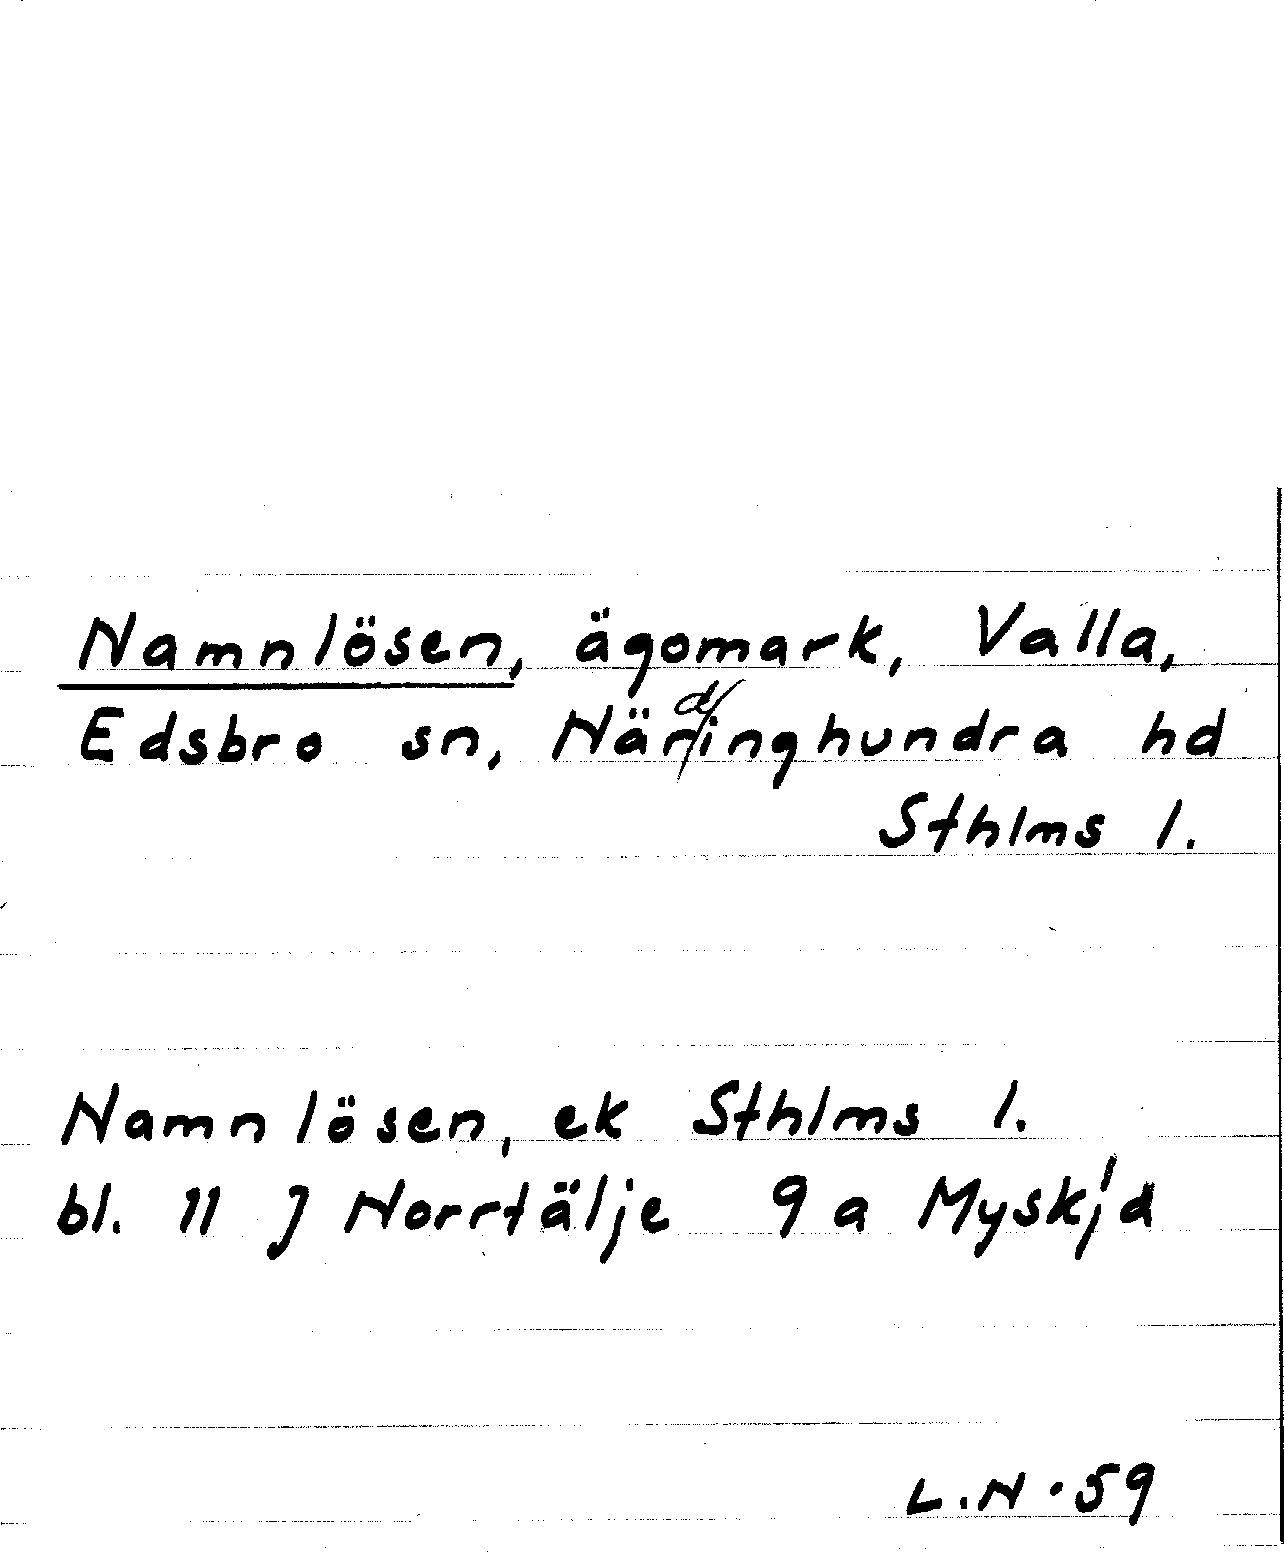 Namnlösen, ägomark, Valla,
Edsbro sn, Närdinghundra hd
Sthlms l.
Namnlösen, ek Sthlms l.
bl. 11 J Norrtälje 9 a Myskja
L.N. 59